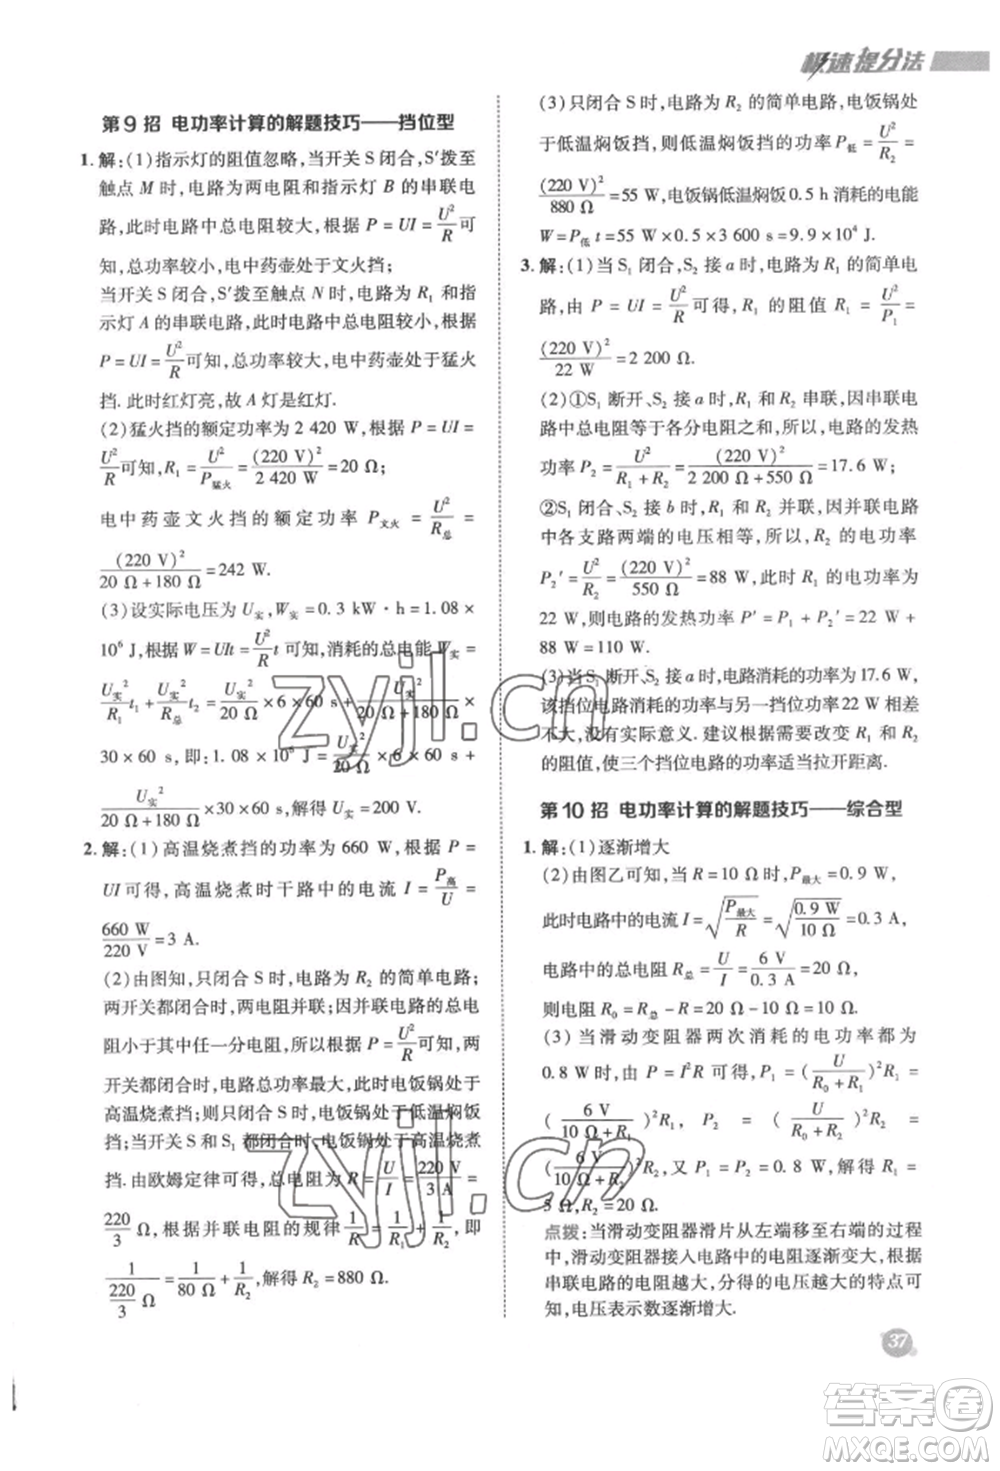 极速提分法
第 9 招 电功率计算的解题技巧——挡位型
1. 解：(1)指示灯的阻值忽略,当开关 S 闭合,S′拨至
触点 M 时,电路为两电阻和指示灯 B 的串联电
路,此时电路中总电阻较大,根据 P = UI = U²/R 可
知,总功率较小,电中药壶处于文火挡;
当开关 S 闭合,S′拨至触点 N 时,电路为 R₁ 和指
示灯 A 的串联电路,此时电路中总电阻较小,根据
P = UI = U²/R 可知,总功率较大,电中药壶处于猛火
挡. 此时红灯亮,故 A 灯是红灯.
(2)猛火挡的额定功率为 2 420 W,根据 P = UI =
U²/R 可知,R₁ = U²/P猛火 = (220 V)²/2 420 W = 20 Ω;
电中药壶文火挡的额定功率 P文火 = U²/R总 =
(220 V)²/(20 Ω + 180 Ω) = 242 W.
(3)设实际电压为 U实,W实 = 0.3 kW·h = 1.08 ×
10⁶ J,根据 W = UIt = U²/R t 可知,消耗的总电能 W实 =
U实²/R₁ t₁ + U实²/R总 t₂ = U实²/20 Ω × 6 × 60 s + U实²/(20 Ω + 180 Ω) ×
30 × 60 s,即:1.08 × 10⁶ J = U实²/20 Ω × 6 × 60 s +
U实²/(20 Ω + 180 Ω) × 30 × 60 s,解得 U实 = 200 V.
2. 解：(1)高温烧煮挡的功率为 660 W,根据 P =
UI 可得,高温烧煮时干路中的电流 I = P高/U =
660 W/220 V = 3 A.
(2)由图知,只闭合 S 时,电路为 R₂ 的简单电路;
两开关都闭合时,两电阻并联;因并联电路的总电
阻小于其中任一分电阻,所以根据 P = U²/R 可知,两
开关都闭合时,电路总功率最大,电饭锅处于
高温烧煮挡;只闭合 S 时,电饭锅处于低温焖饭
挡;当开关 S 和 S₁ 都闭合时,电饭锅处于高温烧煮
挡. 由欧姆定律可得,总电阻 R = U/I = 220 V/3 A =
220/3 Ω, 根据并联电阻的规律 1/R = 1/R₁ + 1/R₂, 即
1/(220/3 Ω) = 1/80 Ω + 1/R₂,解得 R₂ = 880 Ω.
(3)只闭合 S 时,电路为 R₂ 的简单电路,电饭锅处
于低温焖饭挡,低温焖饭挡的功率 P低 = U²/R₂ =
(220 V)²/880 Ω = 55 W,电饭锅低温焖饭 0.5 h 消耗的电能
W = P低 t = 55 W × 0.5 × 3 600 s = 9.9 × 10⁴ J.
3. 解：(1)当 S₁ 闭合,S₂ 接 a 时,电路为 R₁ 的简单电
路,由 P = UI = U²/R 可得,R₁ 的阻值 R₁ = U²/P₁ =
(220 V)²/22 W = 2 200 Ω.
(2)①S₁ 断开、S₂ 接 a 时,R₁ 和 R₂ 串联,因串联电
路中总电阻等于各分电阻之和,所以,电路的发热
功率 P₂ = U²/(R₁ + R₂) = (220 V)²/(2 200 Ω + 550 Ω) = 17.6 W;
②S₁ 闭合、S₂ 接 b 时,R₁ 和 R₂ 并联,因并联电路
中各支路两端的电压相等,所以,R₂ 的电功率
P₂′ = U²/R₂ = (220 V)²/550 Ω = 88 W,此时 R₁ 的功率仍为
22 W,则电路的发热功率 P′ = P₁ + P₂′ = 22 W +
88 W = 110 W.
(3)当 S₁ 断开、S₂ 接 a 时,电路消耗的功率为 17.6 W,
该挡位电路消耗的功率与另一挡位功率 22 W 相差
不大,没有实际意义. 建议需要改变 R₁ 和 R₂
的阻值,使三个挡位电路的功率适当拉开距离.
第 10 招 电功率计算的解题技巧——综合型
1. 解：(1)逐渐增大
(2)由图乙可知,当 R = 10 Ω 时,P最大 = 0.9 W,
此时电路中的电流 I = √(P最大/R) = √(0.9 W/10 Ω) = 0.3 A,
电路中的总电阻 R总 = U/I = 6 V/0.3 A = 20 Ω,
则电阻 R₀ = R总 − R = 20 Ω − 10 Ω = 10 Ω.
(3)当滑动变阻器两次消耗的电功率都为
0.8 W 时,由 P = I²R 可得,P₁ = (U/(R₀ + R₁))²R₁ =
(6 V/(10 Ω + R₁))²R₁, P₂ = (U/(R₀ + R₂))²R₂ =
(6 V/(10 Ω + R₂))²R₂,又 P₁ = P₂ = 0.8 W,解得 R₁ =
5 Ω,R₂ = 20 Ω.
点拨:当滑动变阻器滑片从左端移至右端的过程
中,滑动变阻器接入电路中的电阻逐渐变大,根据
串联电路的电阻越大,分得的电压越大的特点可
知,电压表示数逐渐增大.
37
zyjl.cn
zyjl.cn
答案圈
MXQE.COM